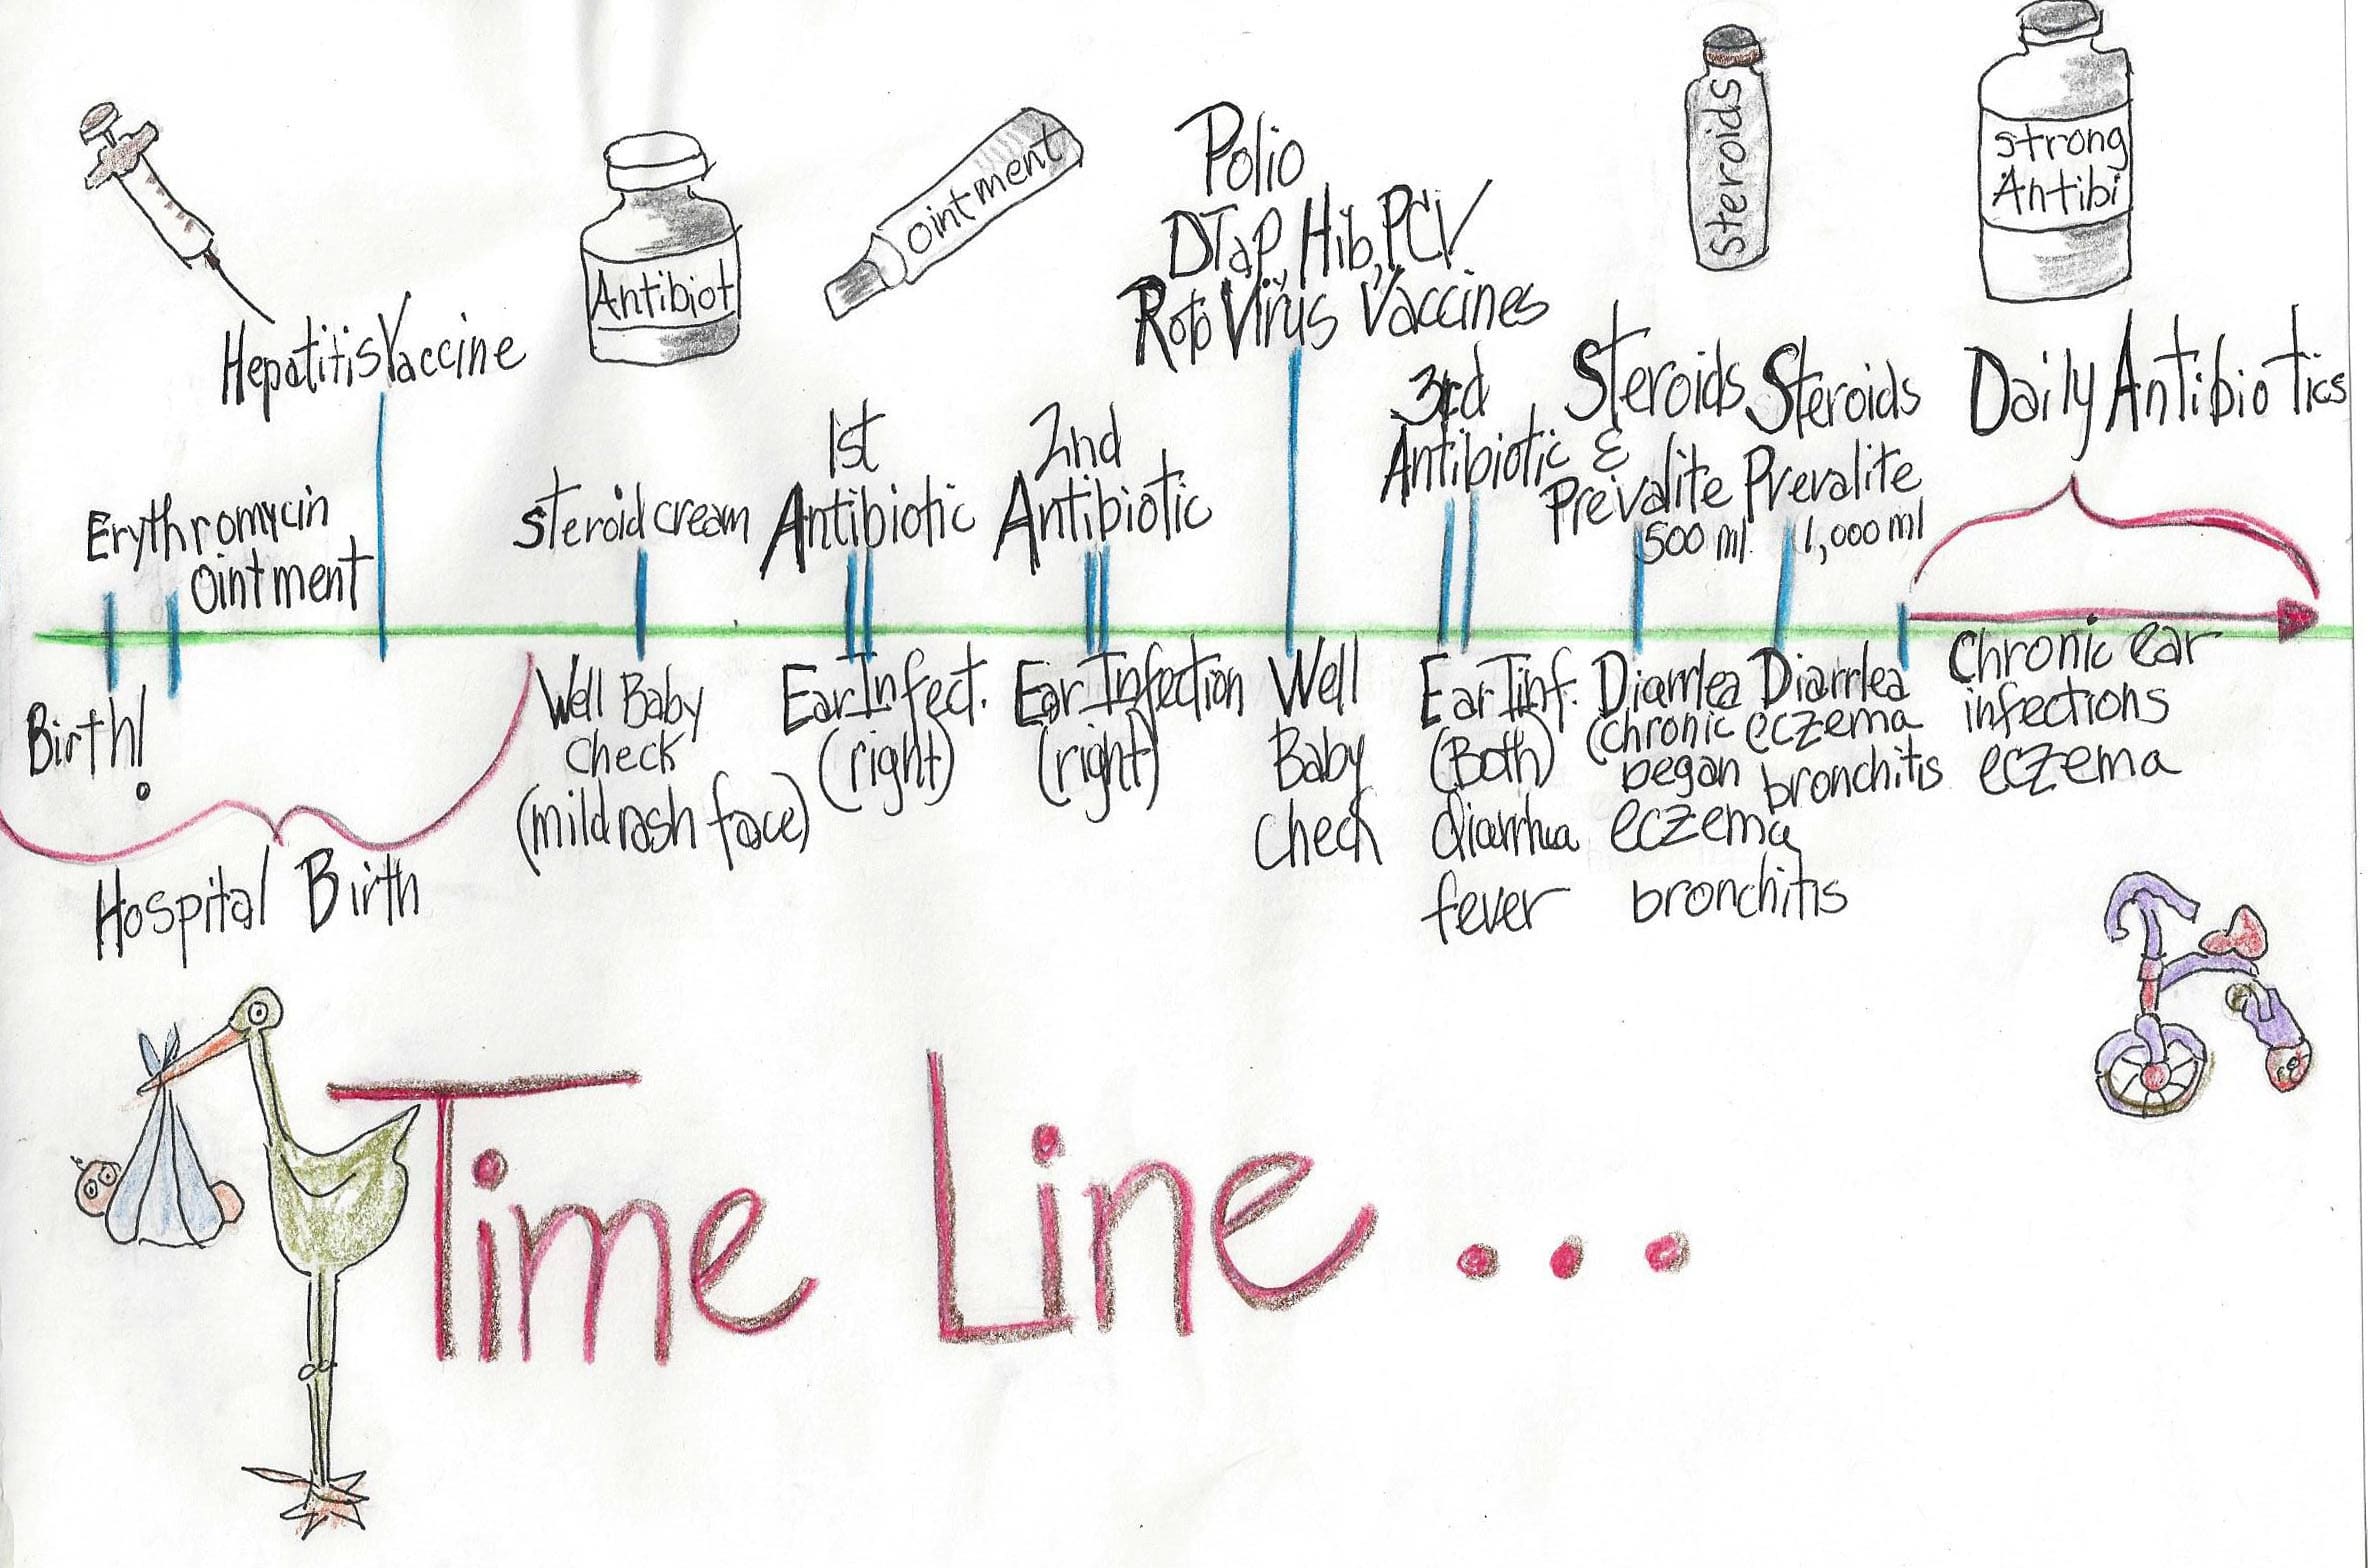 Hepatitis Vaccine
Antibiot
ointment
Polio
DTaP, Hib, PCV
Roto Virus Vaccines
steroids
strong
Antibi
Erythromycin
ointment
steroid cream
1st
Antibiotic
2nd
Antibiotic
3rd
Antibiotic
Steroids
&
Prevalite
500 ml
Steroids
Prevalite
1,000 ml
Daily Antibiotics
Birth!
Hospital Birth
Well Baby
check
(mild rash face)
Ear Infect.
(right)
Ear Infection
(right)
Well
Baby
check
Ear Iinf.
(Both)
diarrhea
fever
Diarrlea
(chronic
began
eczema
bronchitis
Diarrlea
eczema
bronchitis
Chronic ear
infections
eczema
Time Line...